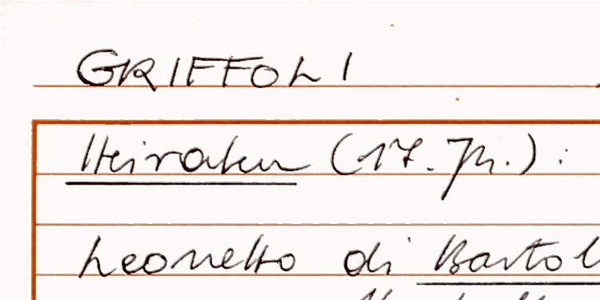 GRIFFOLI
Heiraten (17. Jh.) :
Leonetto di Bartol